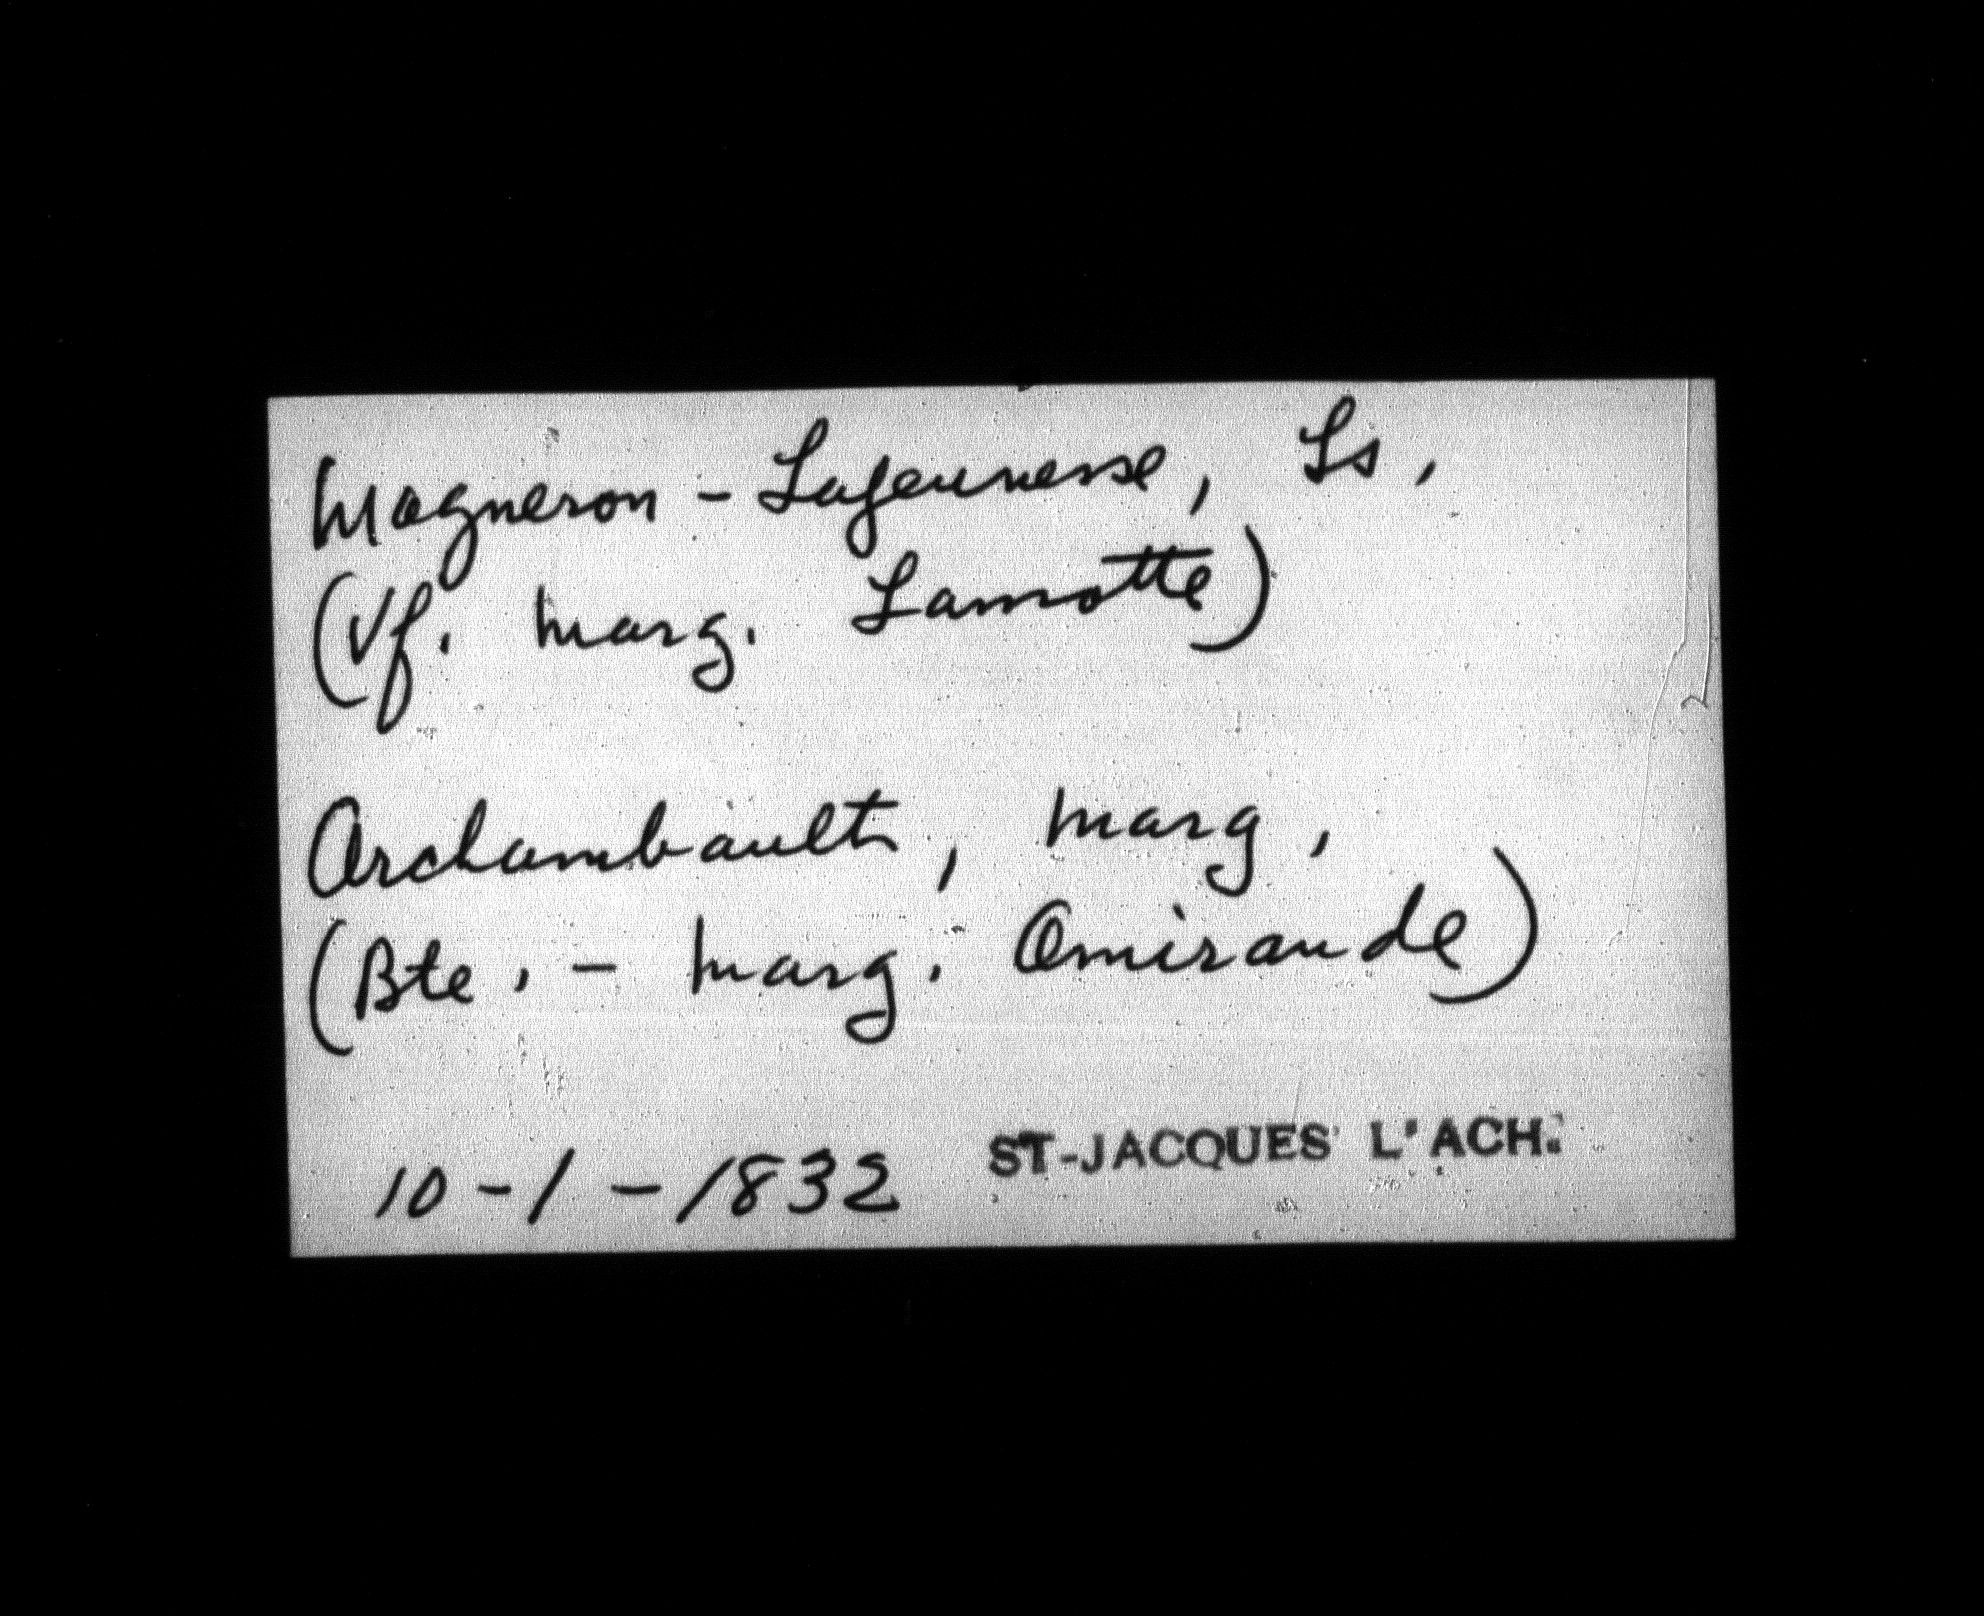 Magneron - Lajeunesse, Ls,
(Vf. Marg. Lamotte)
Archambault, Marg,
(Bte. - Marg. Amirande)
10-1-1832 ST-JACQUES L'ACH.